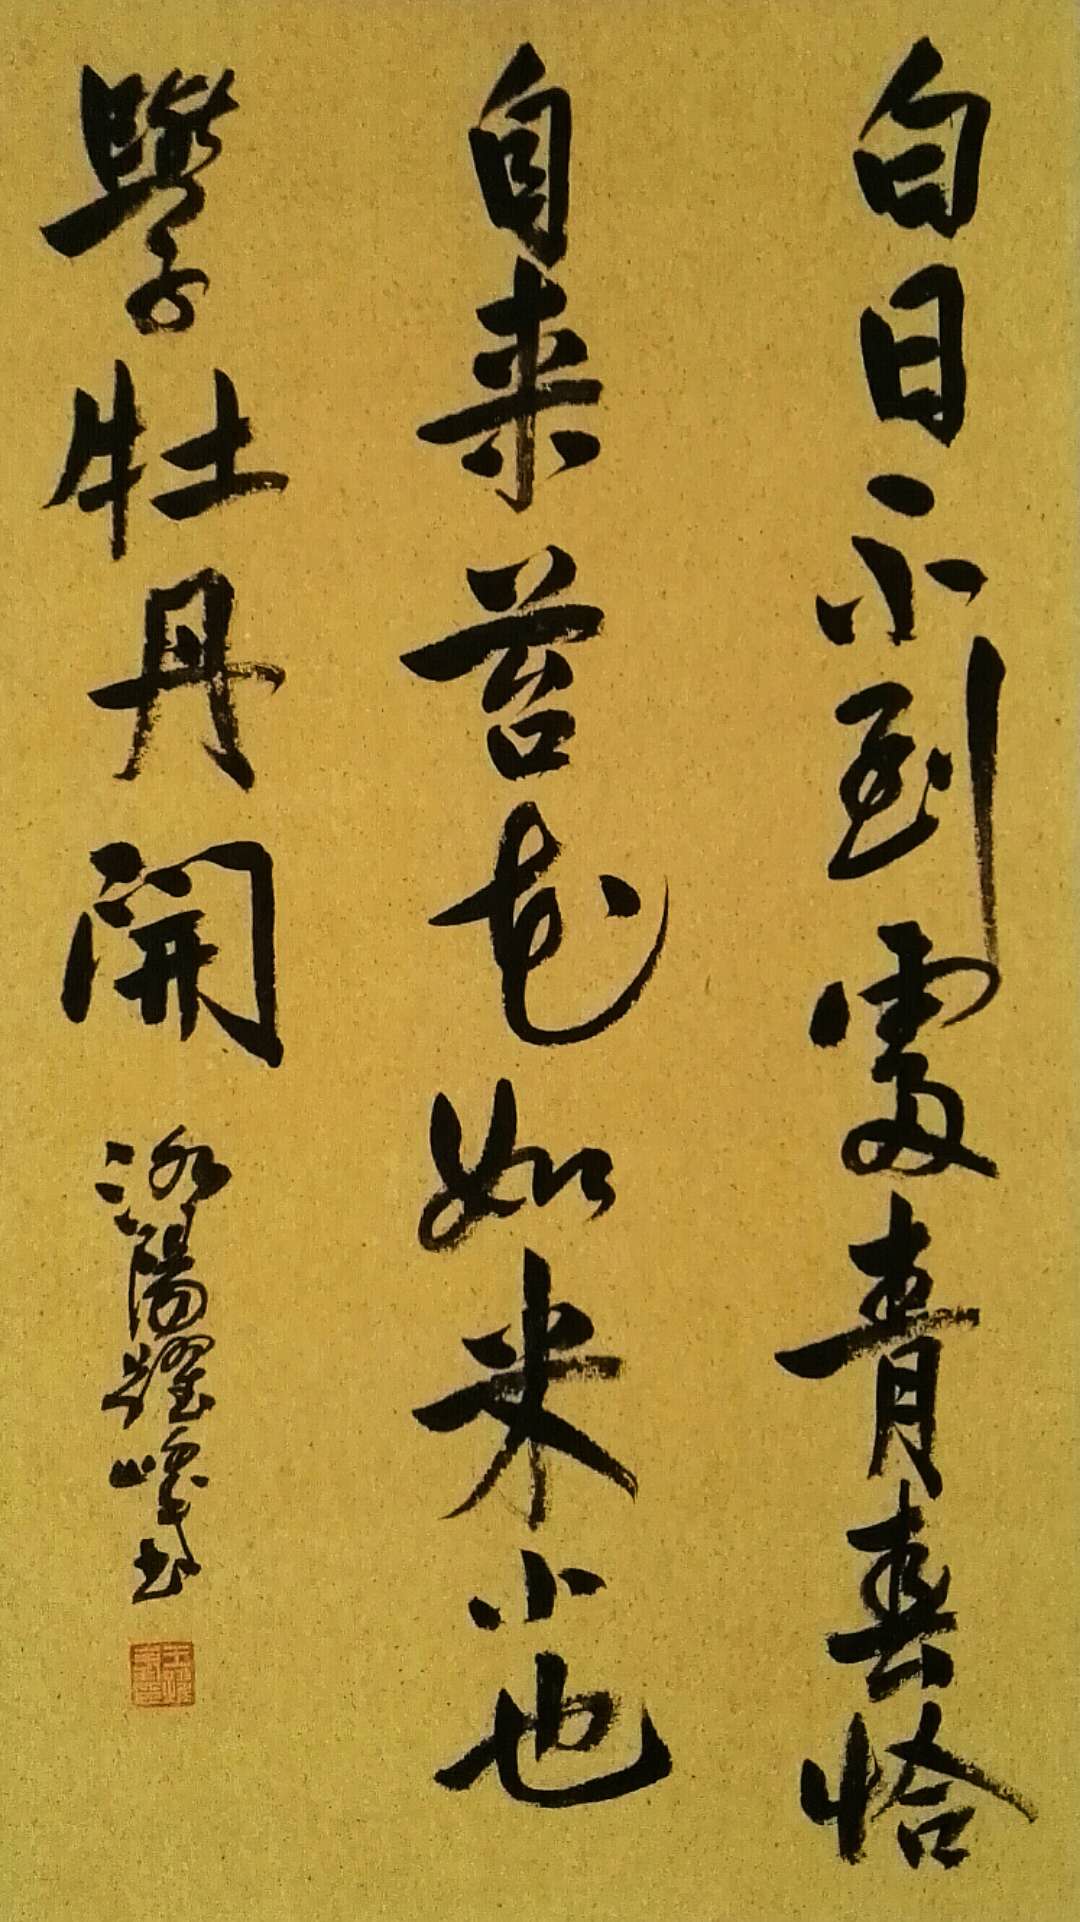 白日不到處青春恰
自来苔花如米小也
學牡丹開
洛陽躍峰書